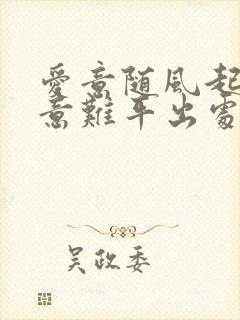 愛意随風起
意難平出處
吴政委